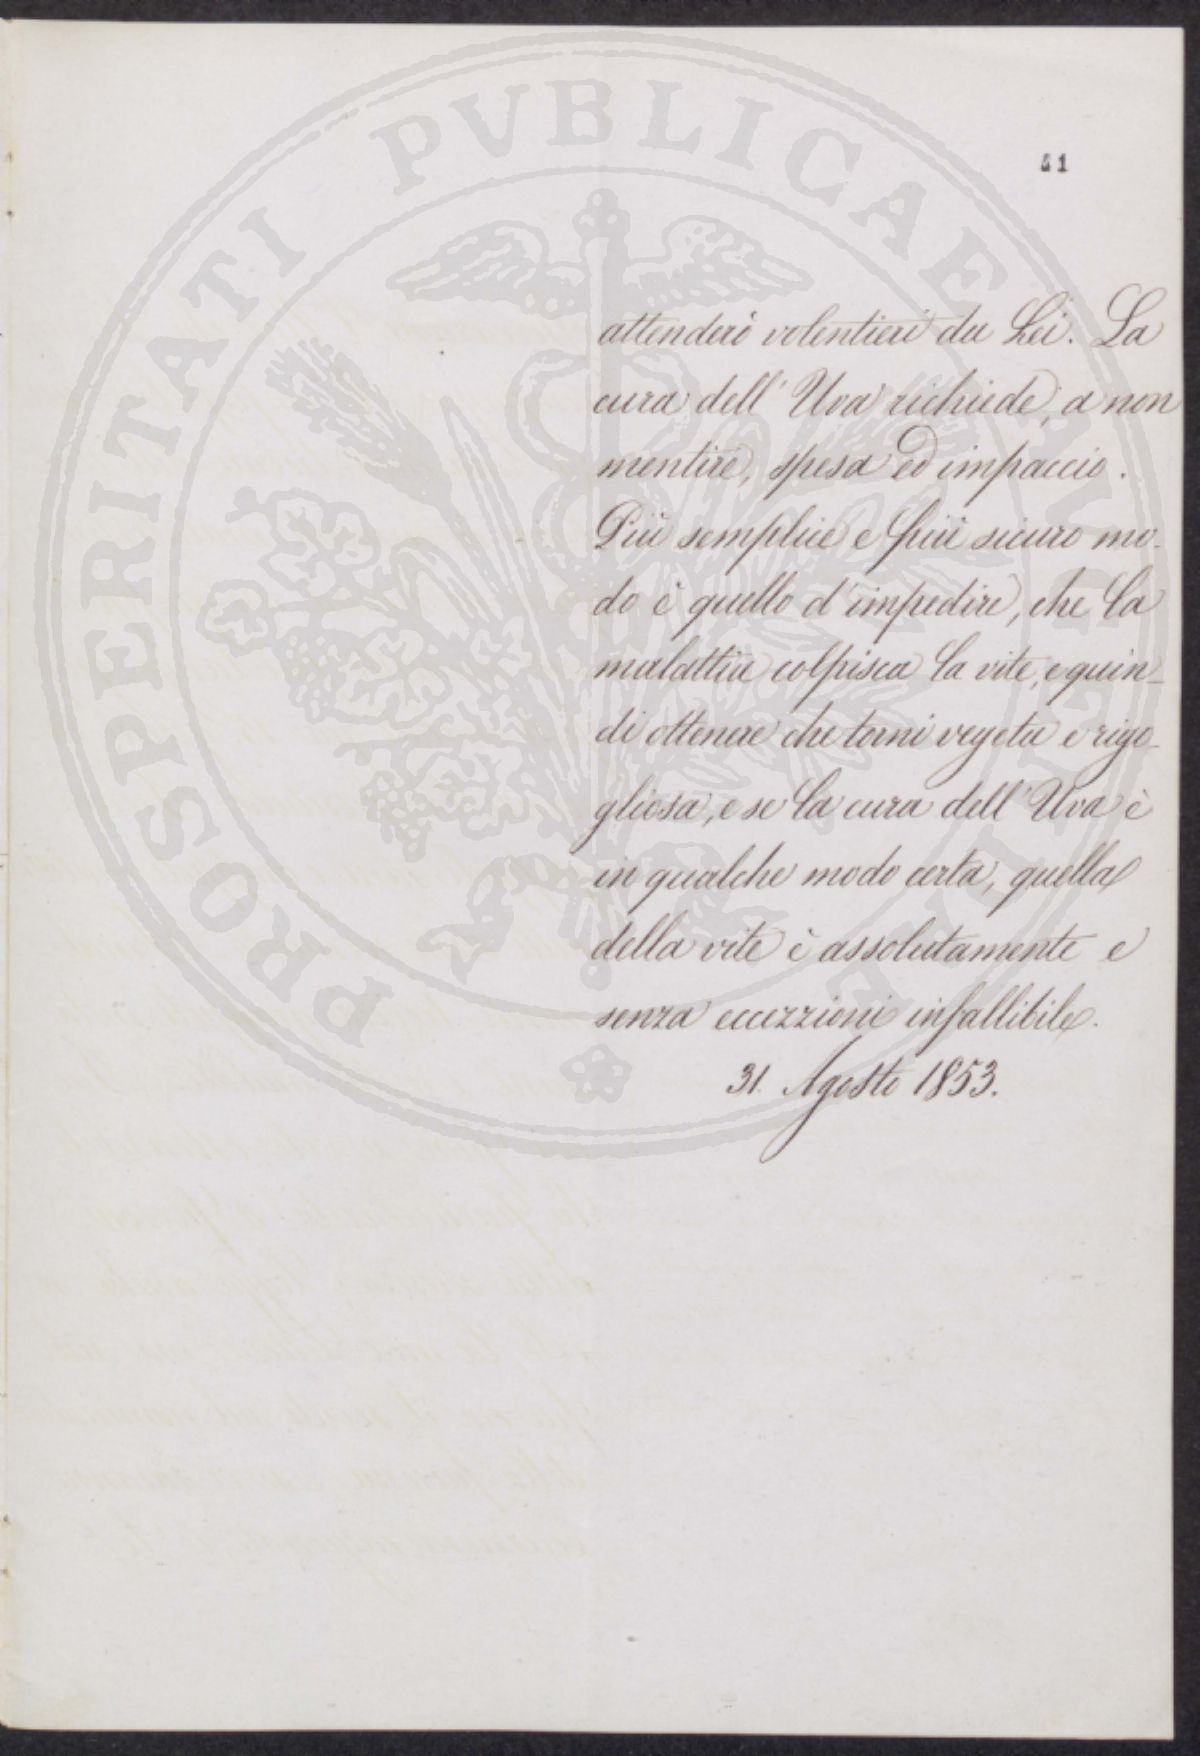 51
attenderò volentieri da Lei. La
cura dell' Uva richiede, a non
mentire, spesa ed impaccio.
Più semplice e più sicuro mo-
do è quello d'impedire, che la
malattia colpisca la vite, e quin-
di ottenere che torni vegeta e rigo-
gliosa, e se la cura dell' Uva è
in qualche modo certa, quella
della vite è assolutamente e
senza eccezzioni infallibile.
31. Agosto 1853.
PROSPERITATI PVBLICAE AVGENDAE